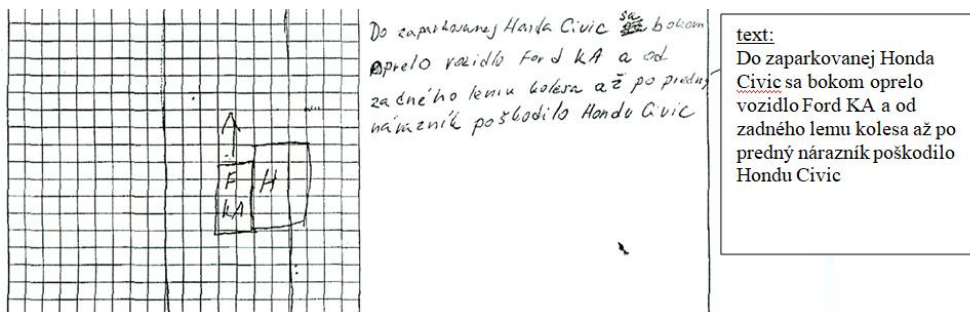 Do zaparkovanej Honda Civic sa bokom
oprelo vozidlo Ford KA a od
zadného lemu kolesa až po predný
nárazník poškodilo Hondu Civic
F
KA
H
text:
Do zaparkovanej Honda
Civic sa bokom oprelo
vozidlo Ford KA a od
zadného lemu kolesa až po
predný nárazník poškodilo
Hondu Civic